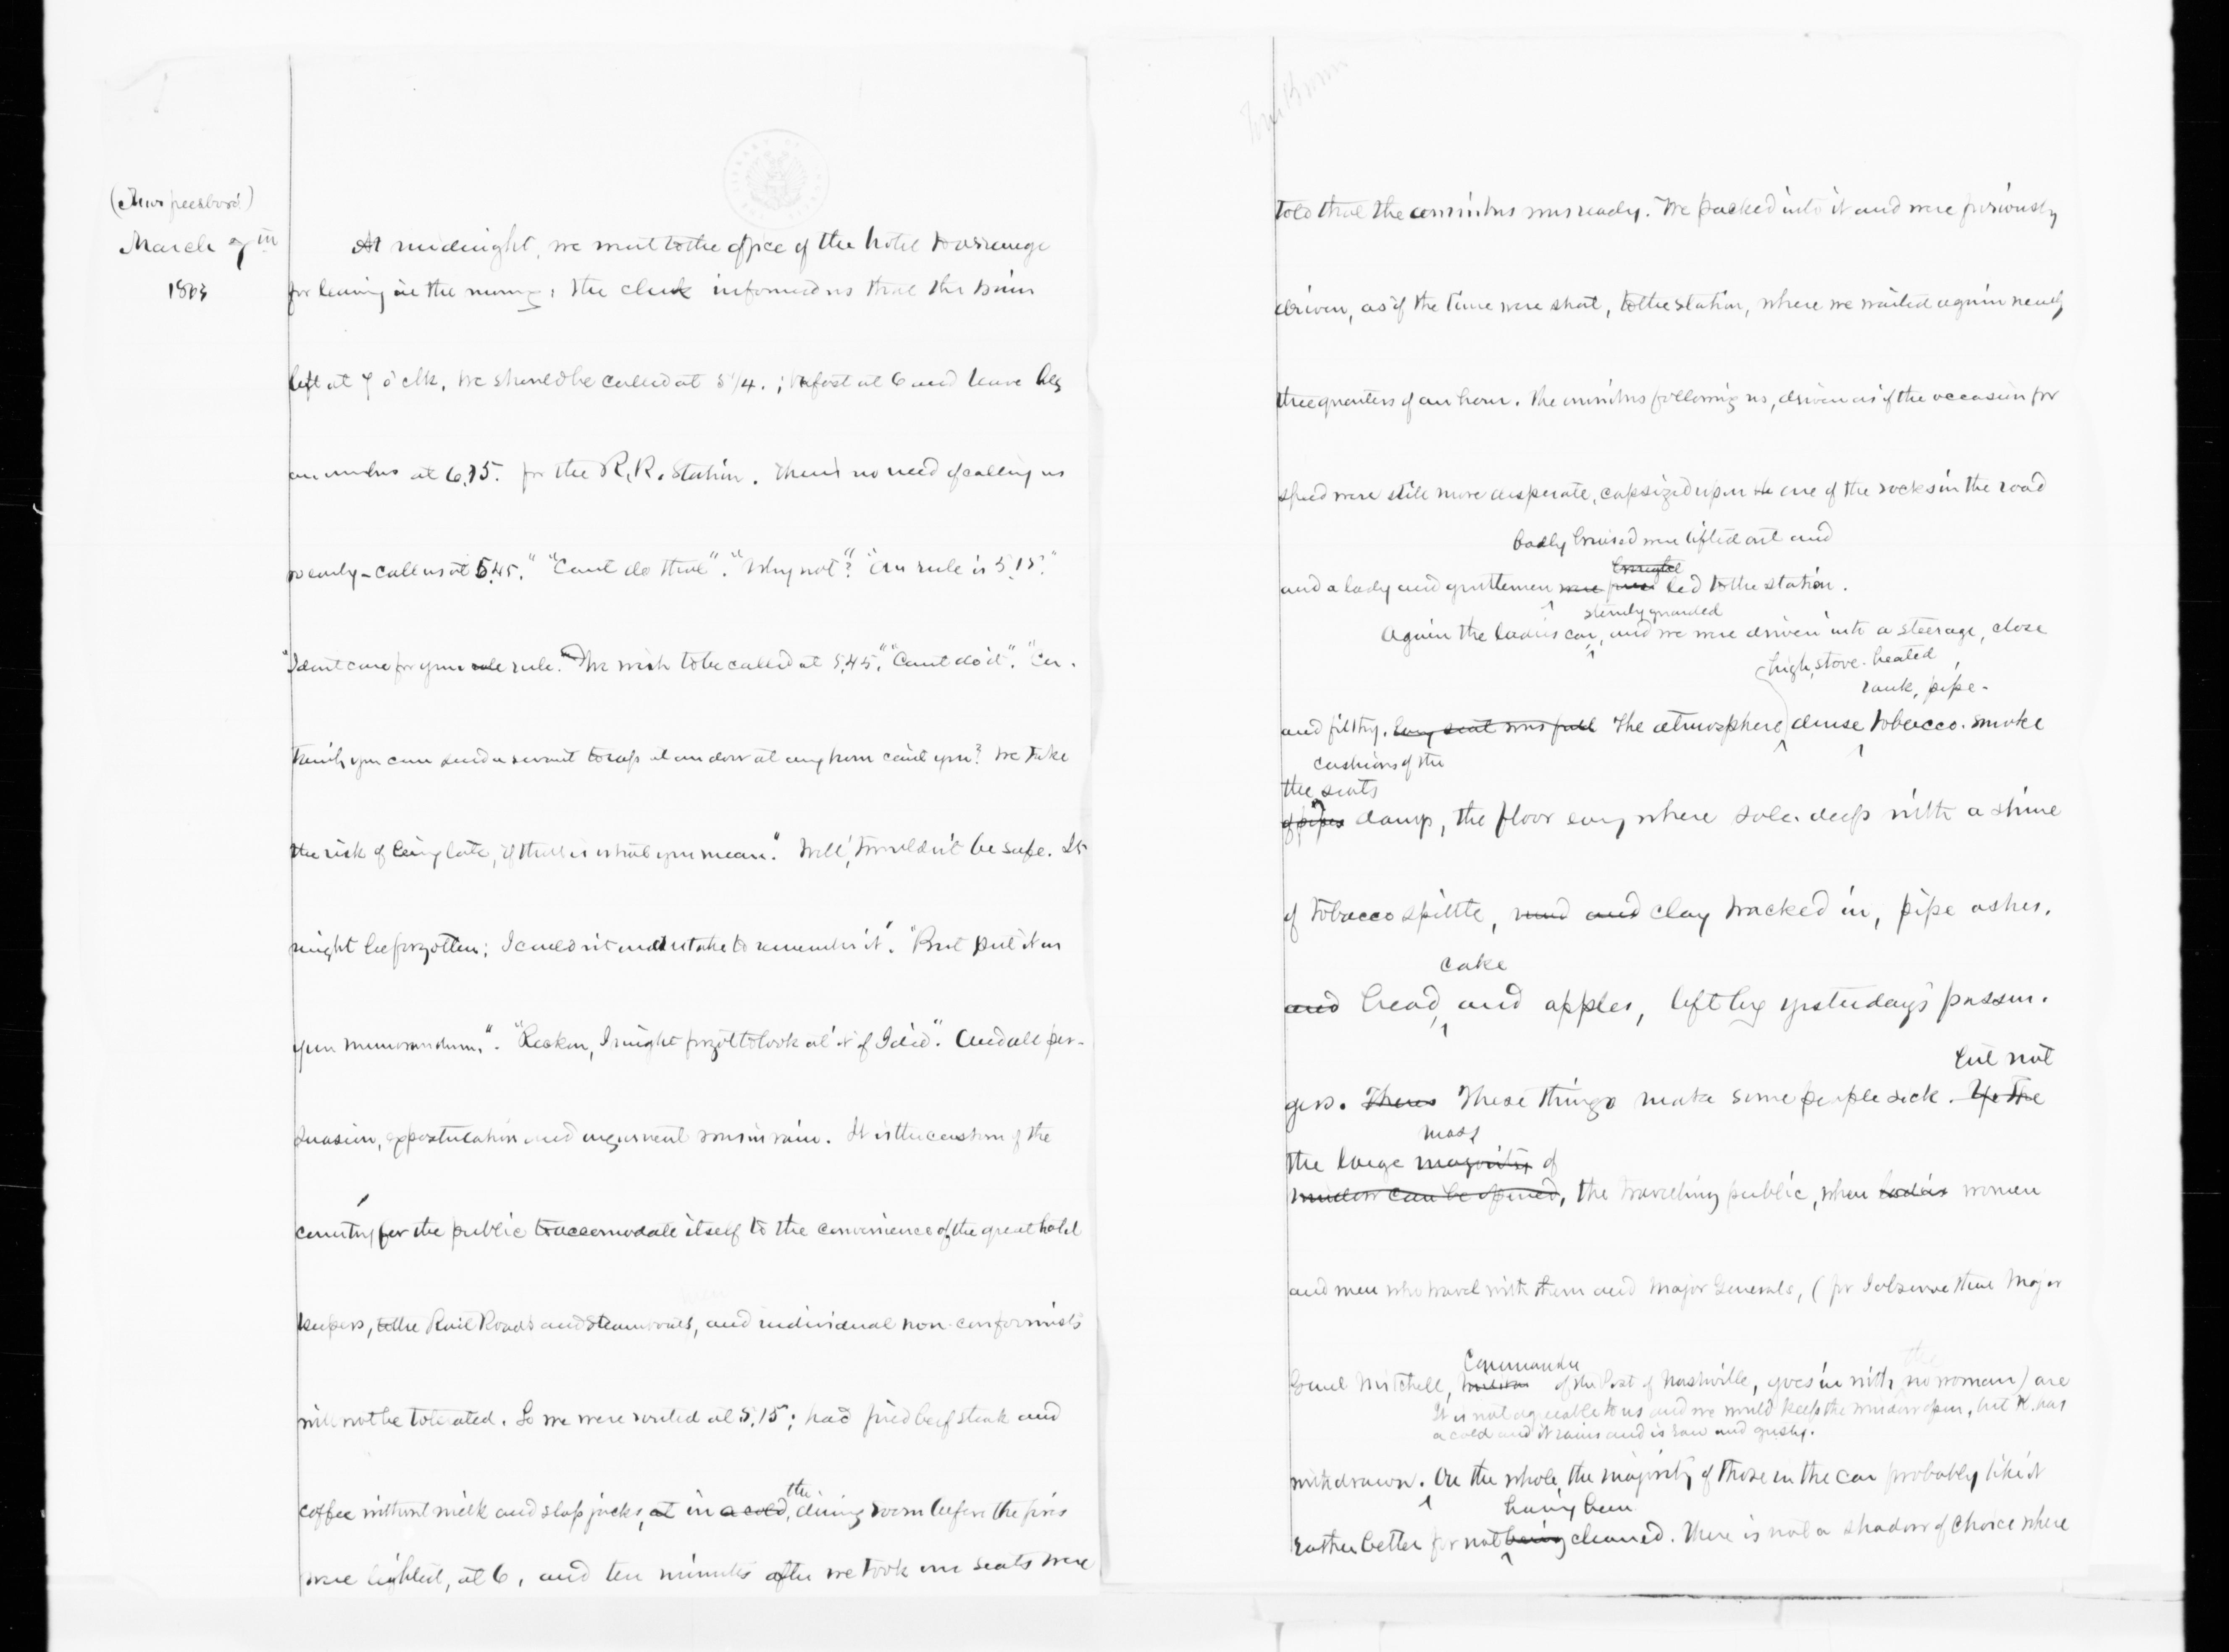 (Murfreesboro')
March 7th
1863
At midnight, we went to the office of the hotel to arrange
for leaving in the morning, the clerk informed us that the train
left at 7 o'clk. We should be called at 5 1/4.; bkfast at 6 and leave by
omnibus at 6.15. for the R.R. Station. There's no need of calling us
so early - call us at 5.45." "Cant do that". "Why not"? "Our rule is 5.15."
"I dont care for your rule rule. We wish to be called at 5.45". "Cant do it". "Cer-
tainly you can send a servant to rap at our door at any hour cant you? We take
the risk of being late, if that is what you mean." "Well, twouldn't be safe. It
might be forgotten; I couldn't undertake to remember it". "But put it on
your memorandum.". "Reckon, I might forget to look at it if I did". And all per-
suasion, expostulation and argument was in vain. It is the custom of the
country for the public to accomodate itself to the convenience of the great hotel
keepers, to the Rail Roads and steamboats, and individual non-conformists
will not be tolerated. So we were routed at 5.15; had fried beef steak and
coffee without milk and slap jacks, at in a cold, the dining room before the fires
were lighted, at 6, and ten minutes after we took our seats were
told that the omnibus was ready. We packed into it and were furiously
driven, as if the time were short, to the station, where we waited again nearly
three quarters of an hour. The omnibus following us, driven as if the occasion for
speed were still more desperate, capsized upon the one of the rocks in the road
badly bruised were lifted out and
brought
and a lady and gentlemen were led to the station.
sternly guarded
Again the ladies car, and we were driven into a steerage, close
high, stove-heated,
rank, pipe-
and filthy. Every seat was full The atmosphere dense tobacco-smoke
cushions of the
the seats
of pipes damp, the floor every where sole-deep with a slime
of tobacco spittle, mud and clay tracked in, pipe ashes,
cake
and bread, and apples, left by yesterday's passen-
but not
gers. There These things make some people sick. If the
mass
the large majority of
window can be opened, the travelling public, when ladies women
and men who travel with them and Major Generals, (for I observe that Major
Commander the
Genrl Mitchell, of the Post of Nashville, goes in with no woman) are
It is not agreeable to us and we would keep the window open, but K. has
a cold and it rains and is raw and gusty.
withdrawn. On the whole, the majority of those in the car probably like it
having been
rather better for not being cleaned. There is not a shadow of choice where